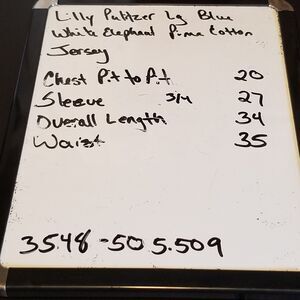 Lilly Pulitzer Lg Blue
White Elephant Pima Cotton
Jersey
Chest Pit to Pit 20
Sleeve 3/4 27
Overall Length 34
Waist 35
3548-505.509